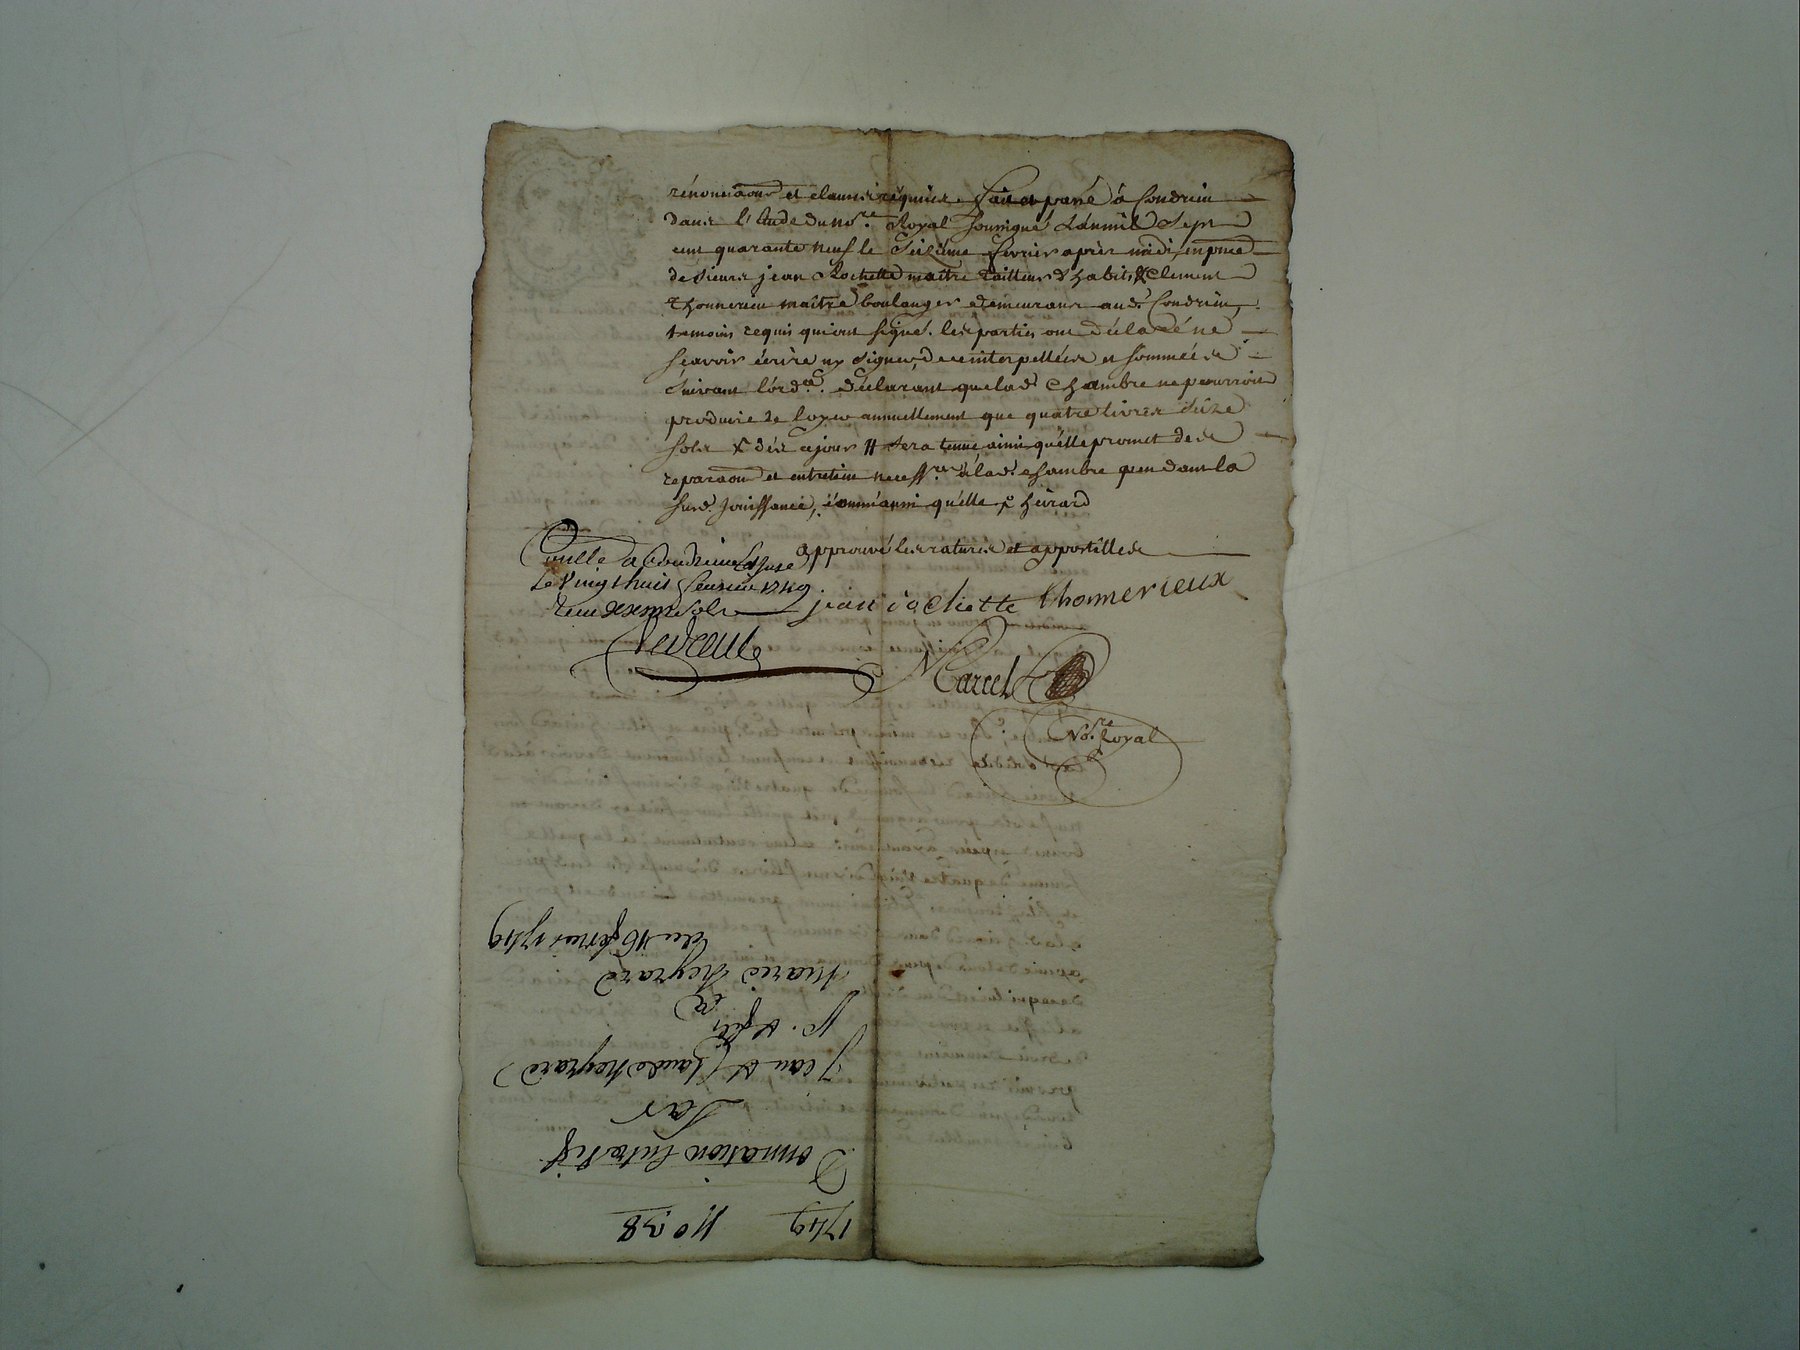 rénonciaôns et clauses requises. fait et passé à Condrieu
dans l'étude du no.re Royal soussigné L'an mil sept
cent quarante neuf le seizième fevrier après midi en pnce
de sieurs jean Rochette maître tailleur d'habits & Clement
thonnerieu maître boulanger demeurans aud. Condrieu,
temoins requis qui ont signé. les parties ont déclaré ne
scavoir écrire ny signer, de ce interpellées et sommées
suivant l'ord.ce. déclarant que lad. chambre ne pourroit
produire de loyer annuellement que quatre livres seize
sols & dès ce jour sera tenue ainsi qu'elle promet de
reparaôn et entretien necess.res à lad. chambre pendant la
susd. jouissance, comm'aussi qu'elle heirard
approuvé les ratures et appostilles
Conllé a Condrieu
Le vingt huit fevrier 1749
Receu sols
jean rochette thonnerieux
Marcel
No.re Royal
1749 No 38
Donnation Entre vif
Par
Jean & Claude heyrard
P. & fils
a
Marie heyrard
du 16 fevrier 1749